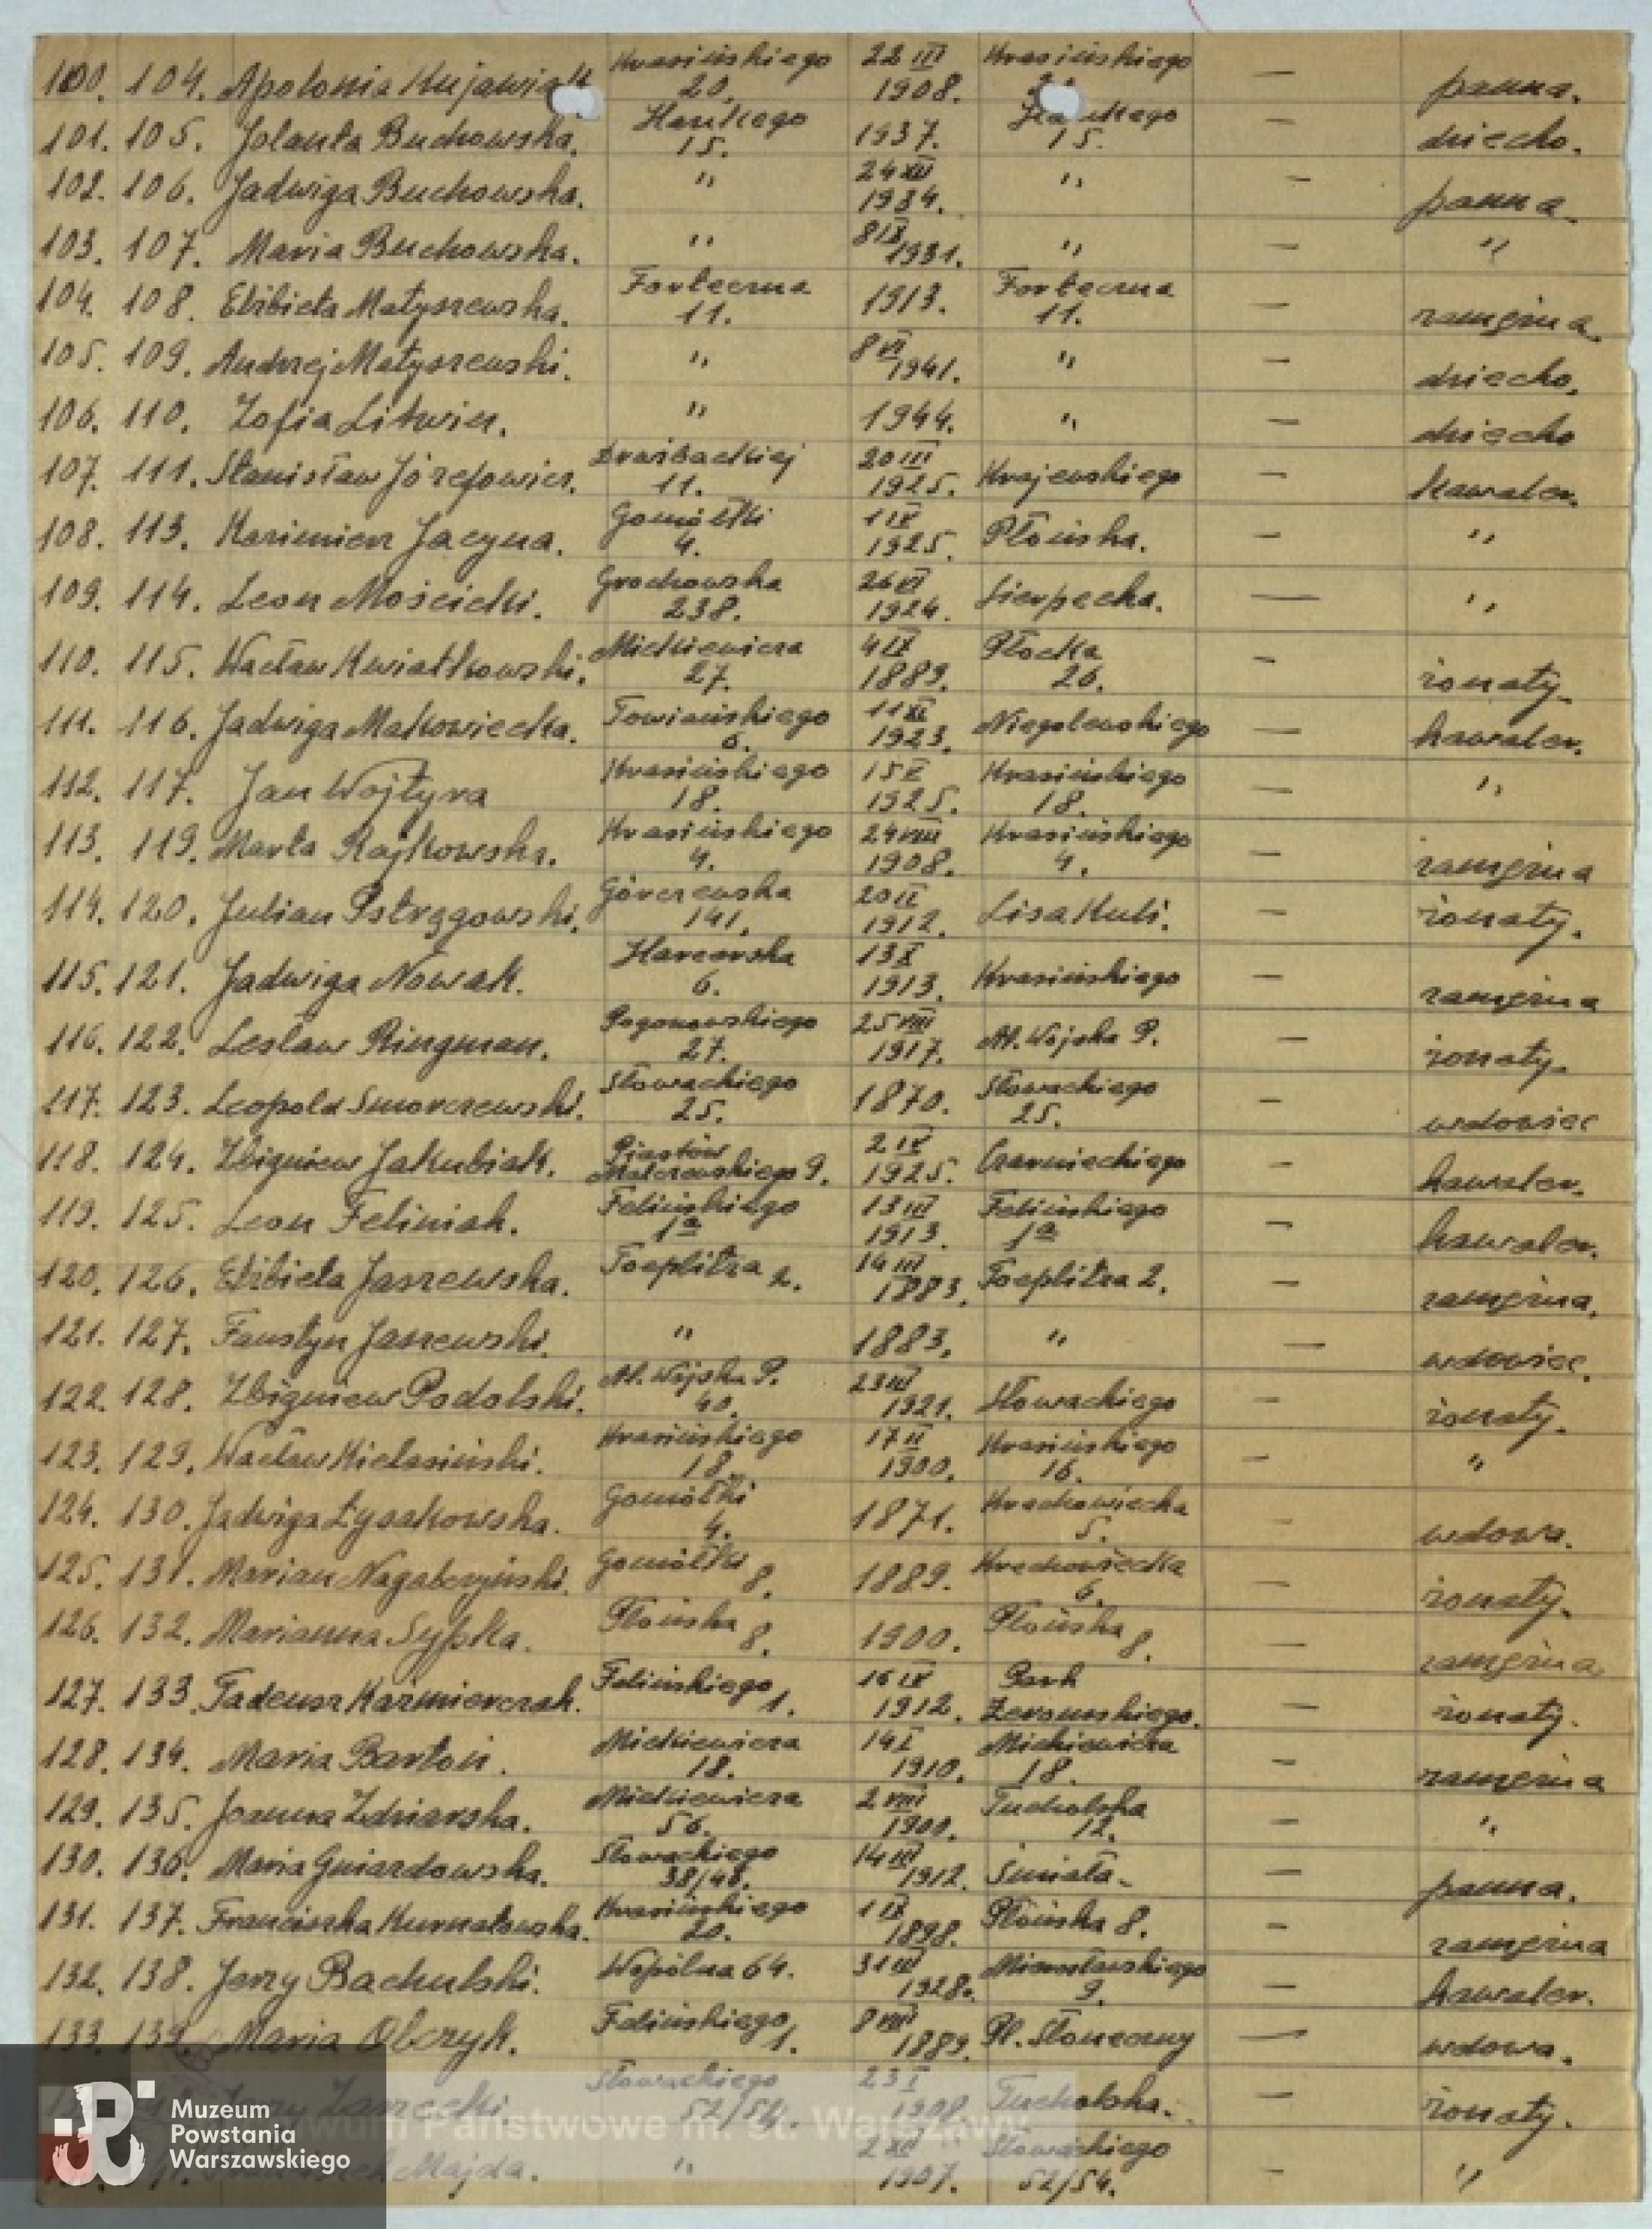 100. 104. Apolonia Kujawiak Krasińskiego 20. 22 III 1908. Krasińskiego — panna.
101. 105. Jolanta Buchowska. Haukego 15. 1937. Haukego 15. — dziecko.
102. 106. Jadwiga Buchowska. " 24 XII 1934. " — panna.
103. 107. Maria Buchowska. " 8 IX 1931. " — "
104. 108. Elżbieta Matyszewska. Forteczna 11. 1913. Forteczna 11. — zamężna.
105. 109. Andrzej Matyszewski. " 8 VI 1941. " — dziecko.
106. 110. Zofia Litwin. " 1944. " — dziecko
107. 111. Stanisław Józefowicz. Drużbackiej 11. 20 III 1925. Krajewskiego — kawaler.
108. 113. Kazimierz Jacyna. Gomółki 4. 1 IX 1925. Płońska. — "
109. 114. Leon Mościcki. Grochowska 238. 26 VI 1924. Sierpecka. — "
110. 115. Wacław Kwiatkowski. Mickiewicza 27. 4 IX 1889. Płocka 26. — żonaty.
111. 116. Jadwiga Makowiecka. Towiańskiego 6. 11 XI 1923. Niegolewskiego — kawaler.
112. 117. Jan Wojtyra Krasińskiego 18. 15 X 1925. Krasińskiego 18. — "
113. 119. Marta Rajkowska. Krasińskiego 4. 24 VIII 1908. Krasińskiego 4. — zamężna
114. 120. Julian Pstrągowski. Górczewska 141. 20 II 1912. Lisa Kuli. — żonaty.
115. 121. Jadwiga Nowak. Harcerska 6. 13 X 1913. Krasińskiego — zamężna
116. 122. Lesław Ringman. Pogonowskiego 27. 25 VIII 1917. Al. Wojska P. — żonaty.
117. 123. Leopold Smorczewski. Słowackiego 25. 1870. Słowackiego 25. — wdowiec
118. 124. Zbigniew Jakubiak. Piastów Malczewskiego 9. 2 IX 1925. Czarnieckiego — kawaler.
119. 125. Leon Feliniak. Felińskiego 1a 13 III 1913. Felińskiego 1a — kawaler.
120. 126. Elżbieta Jaszewska. Toeplitza 2. 14 III 1883. Toeplitza 2. — zamężna.
121. 127. Faustyn Jaszewski. " 1883. " — wdowiec.
122. 128. Zbigniew Podolski. Al. Wojska P. 40. 23 III 1921. Słowackiego — żonaty.
123. 129. Wacław Kielasiński. Krasińskiego 18. 17 II 1900. Krasińskiego 16. — "
124. 130. Jadwiga Łysakowska. Gomółki 4. 1871. Krechowiecka 5. — wdowa.
125. 131. Marian Nagabczyński. Gomółki 8. 1889. Krechowiecka 6. — żonaty.
126. 132. Marianna Sypka. Płońska 8. 1900. Płońska 8. — zamężna
127. 133. Tadeusz Kaźmierczak. Felińskiego 1. 16 IX 1912. Park Żeromskiego. — żonaty.
128. 134. Maria Bartoń. Mickiewicza 18. 14 I 1910. Mickiewicza 18. — zamężna
129. 135. Joanna Zdziarska. Mickiewicza 56. 2 VIII 1900. Tucholska 12. — "
130. 136. Maria Gniazdowska. Słowackiego 38/48. 14 III 1912. Śmiała. — panna.
131. 137. Franciszka Kurnatowska. Krasińskiego 20. 1 IX 1898. Płońska 8. — zamężna
132. 138. Jerzy Bachulski. Wspólna 64. 31 III 1928. Mierosławskiego 9. — kawaler.
133. 139. Maria Olczyk. Felińskiego 1. 8 VIII 1889. Pl. Słoneczny — wdowa.
Słowackiego 52/54. 23 I 1908 Tucholska. — żonaty.
Majda. " 2 XII 1907. Słowackiego 52/54. — "
Muzeum
Powstania
Warszawskiego
Państwowe m. st. Warszawy